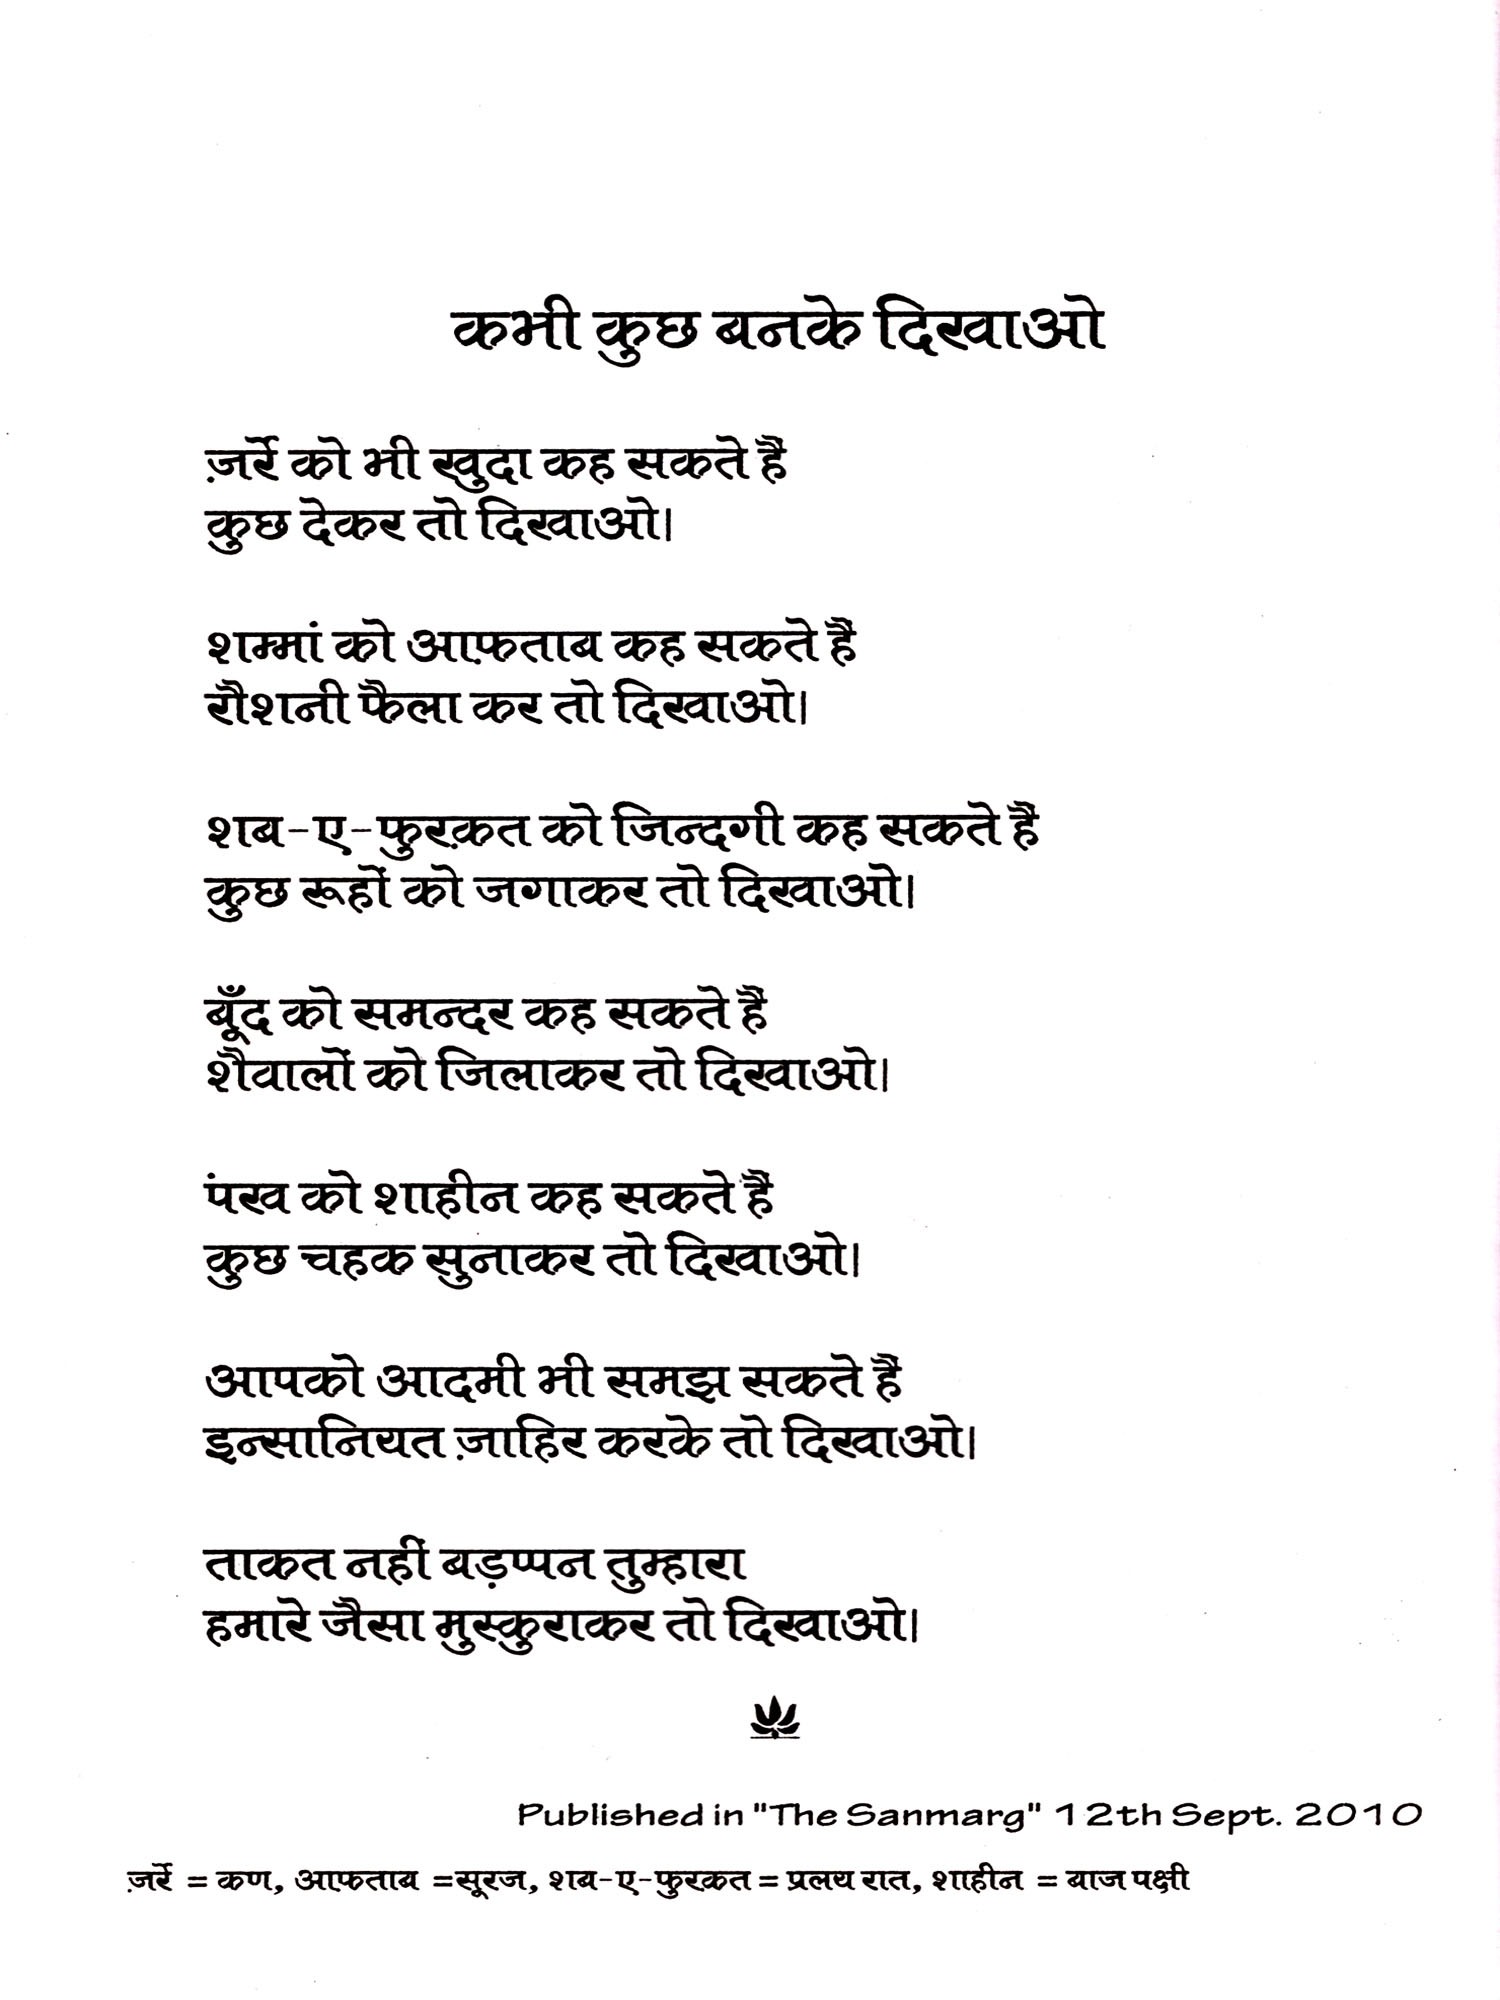 कभी कुछ बनके दिखाओ
ज़र्रे को भी खुदा कह सकते हैं
कुछ देकर तो दिखाओ।
शम्मां को आफ़ताब कह सकते हैं
रौशनी फैला कर तो दिखाओ।
शब-ए-फुरक़त को जिन्दगी कह सकते हैं
कुछ रूहों को जगाकर तो दिखाओ।
बूँद को समन्दर कह सकते हैं
शैवालों को जिलाकर तो दिखाओ।
पंख को शाहीन कह सकते हैं
कुछ चहक सुनाकर तो दिखाओ।
आपको आदमी भी समझ सकते हैं
इन्सानियत ज़ाहिर करके तो दिखाओ।
ताकत नहीं बड़प्पन तुम्हारा
हमारे जैसा मुस्कुराकर तो दिखाओ।
Published in "The Sanmarg" 12th Sept. 2010
ज़र्रे = कण, आफताब =सूरज, शब-ए-फुरकत = प्रलय रात, शाहीन = बाज पक्षी